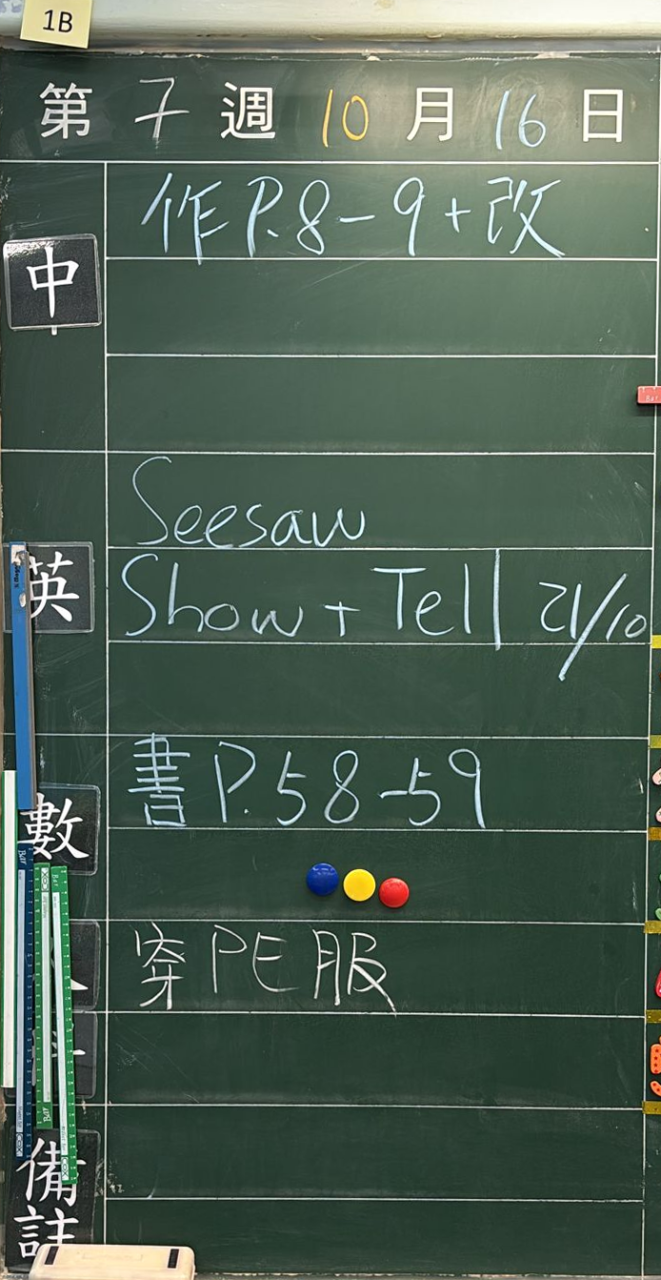 1B
第 7 週 10 月 16 日
中
作 P.8-9+改
英
Seesaw
Show + Tell 21/10
數
書 P.58-59
穿 PE 服
備註